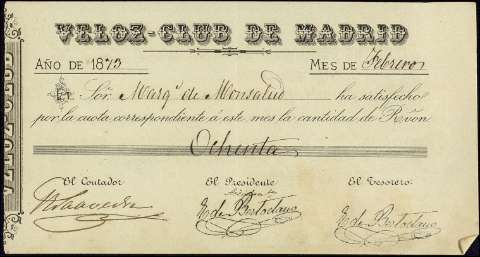 VELOZ-CLUB DE MADRID
AÑO DE 1873 MES DE Febrero
El Sör. Marqs. de Monsalud ha satisfecho
por la cuota correspondiente á este mes la cantidad de Rsvon
Ochenta
El Contador El Presidente El Tesorero
E. de Bertodano E. de Bertodano
VELOZ-CLUB